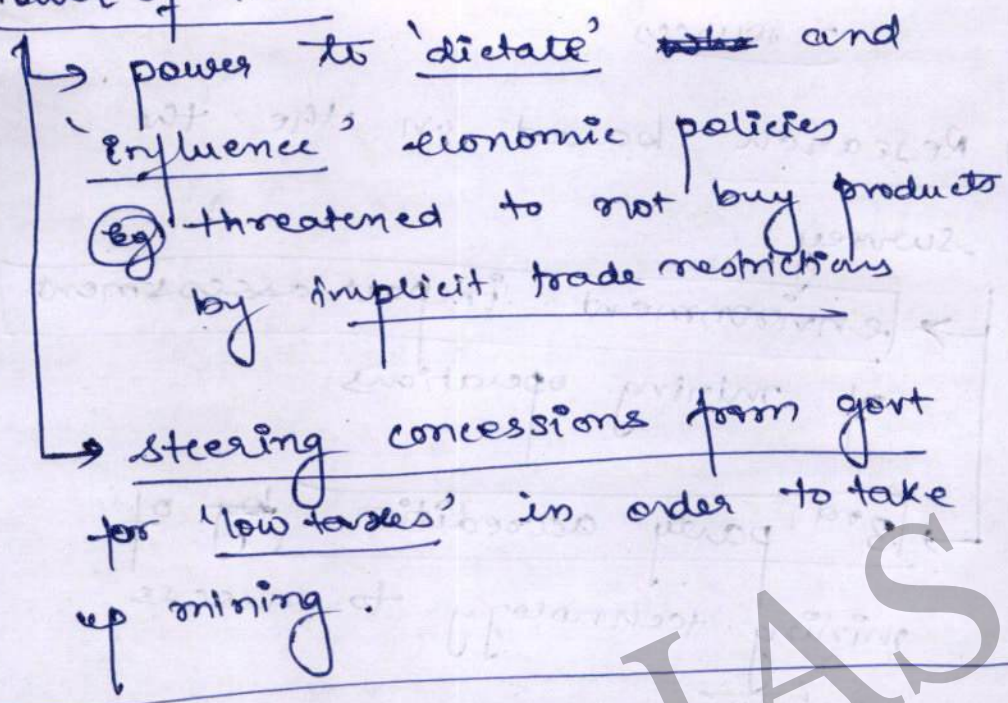 → power to 'dictate' and
'influence' economic policies
eg threatened to not buy products
by implicit trade restrictions
→ steering concessions from govt
for 'low taxes' in order to take
up mining.
IAS